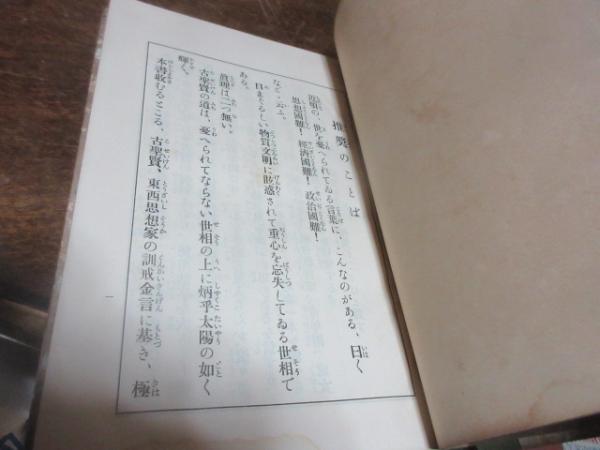 推奬のことば
近頃の、世を憂へられてゐる言葉に、こんなのがある、曰く
思想國難！ 經濟國難！ 政治國難！
など、云ふ。
目まぐるしい物質文明に眩惑されて重心を忘失してゐる世相で
ある。
眞理は二つ無い。
古聖賢の道は、憂へられてならない世相の上に炳乎太陽の如く
輝く。
本書收むるところ、古聖賢、東西思想家の訓戒金言に基き、極
一